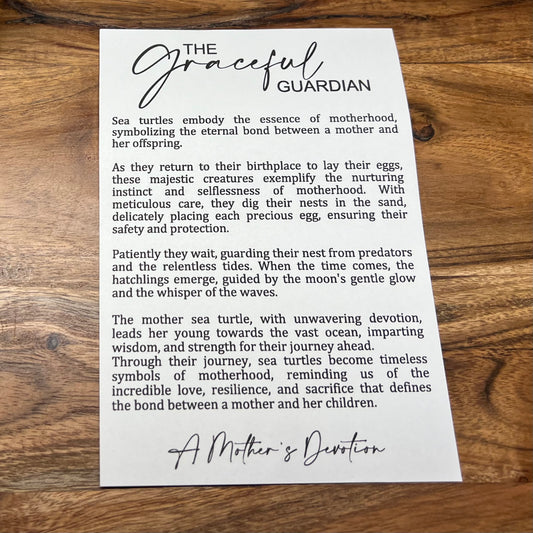 THE
Graceful
GUARDIAN
Sea turtles embody the essence of motherhood,
symbolizing the eternal bond between a mother and
her offspring.
As they return to their birthplace to lay their eggs,
these majestic creatures exemplify the nurturing
instinct and selflessness of motherhood. With
meticulous care, they dig their nests in the sand,
delicately placing each precious egg, ensuring their
safety and protection.
Patiently they wait, guarding their nest from predators
and the relentless tides. When the time comes, the
hatchlings emerge, guided by the moon's gentle glow
and the whisper of the waves.
The mother sea turtle, with unwavering devotion,
leads her young towards the vast ocean, imparting
wisdom, and strength for their journey ahead.
Through their journey, sea turtles become timeless
symbols of motherhood, reminding us of the
incredible love, resilience, and sacrifice that defines
the bond between a mother and her children.
A Mother's Devotion